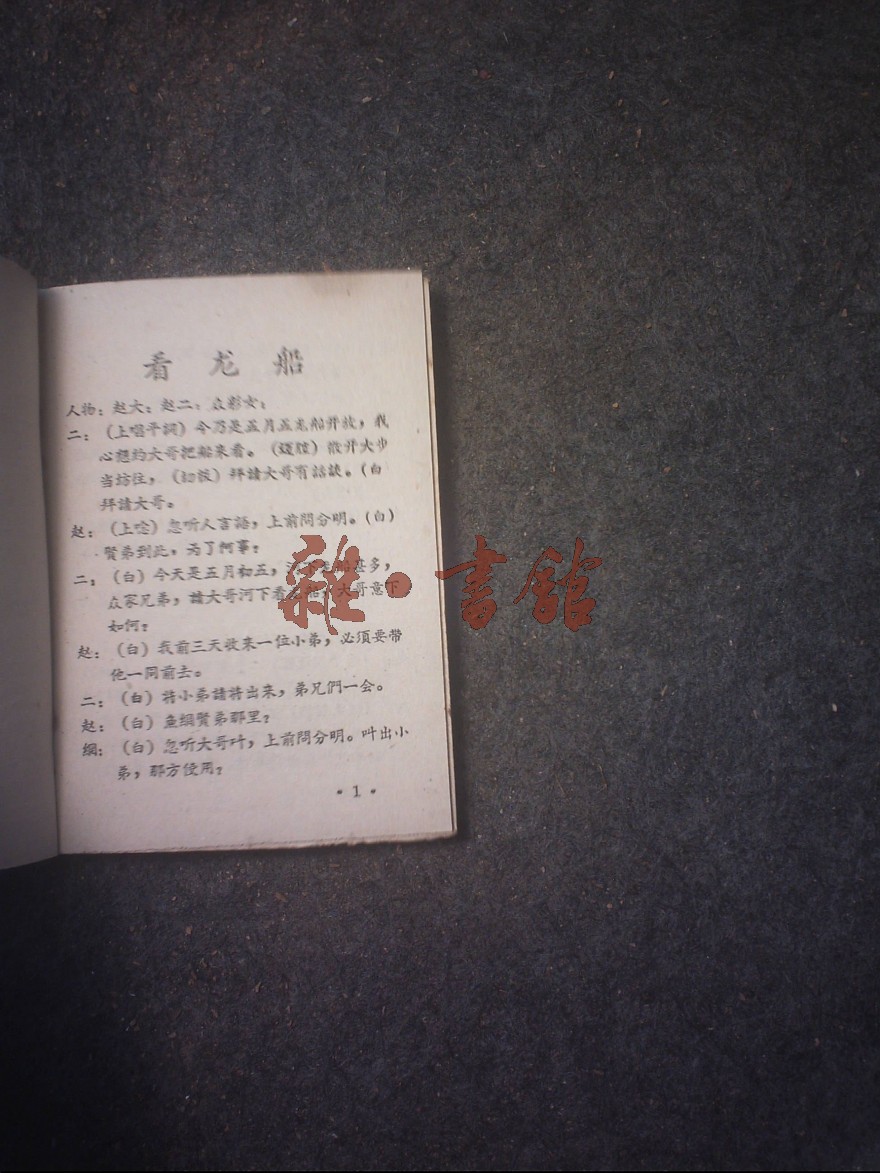 看龙船
人物：赵大；赵二；众彩女；
二：（上唱平詞）今乃是五月五龙船开放，我
心想約大哥把船来看。（緩腔）撒开大步
当坊往，（切板）拜請大哥有話談。（白
拜請大哥。
赵：（上唸）忽听人言語，上前問分明。（白）
賢弟到此，为了何事？
二：（白）今天是五月初五，河下龙船甚多，
众家兄弟，請大哥河下看龙船，大哥意下
如何？
赵：（白）我前三天收来一位小弟，必須要带
他一同前去。
二：（白）将小弟請将出来，弟兄們一会。
赵：（白）鱼網賢弟那里？
網：（白）忽听大哥叶，上前問分明。叫出小
弟，那方使用？
·1·
雜·書館